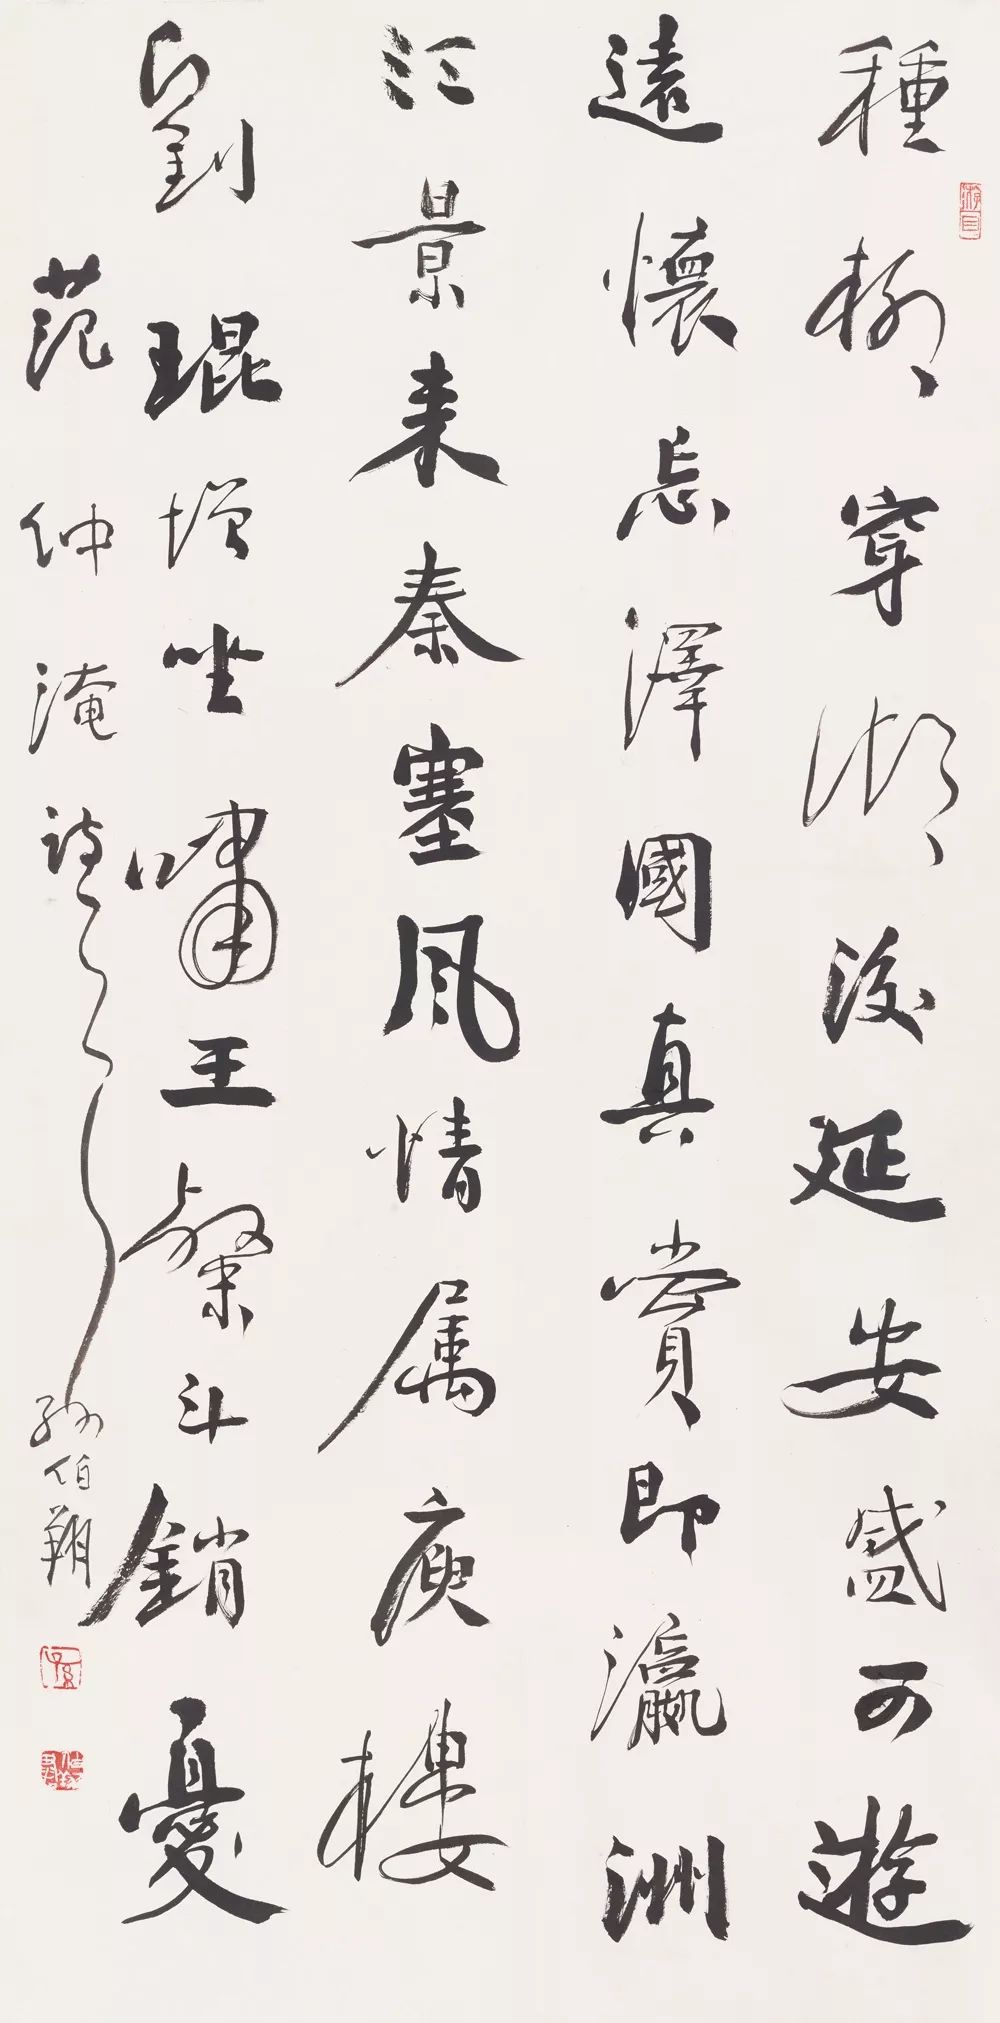 種柳穿湖後延安盛可遊
遠懷忘澤國真賞即瀛洲
江景来秦塞風情属庾樓
劉琨增坐嘯王粲斗銷憂
范仲淹詩
孫伯翔
游目